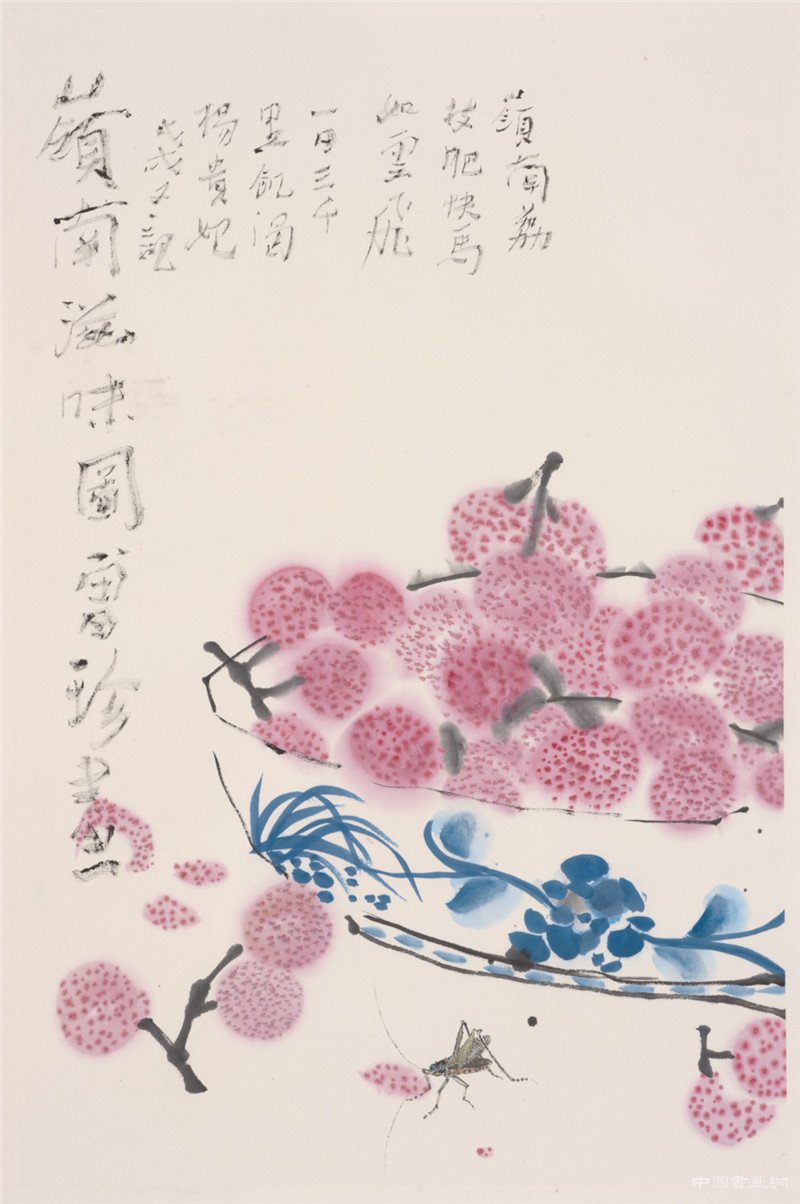 嶺南荔
枝肥快馬
如雲飛
一日三千
里飢渴
楊貴妃
戊戌又記
嶺南滋味圖 珍畫
中国書画网